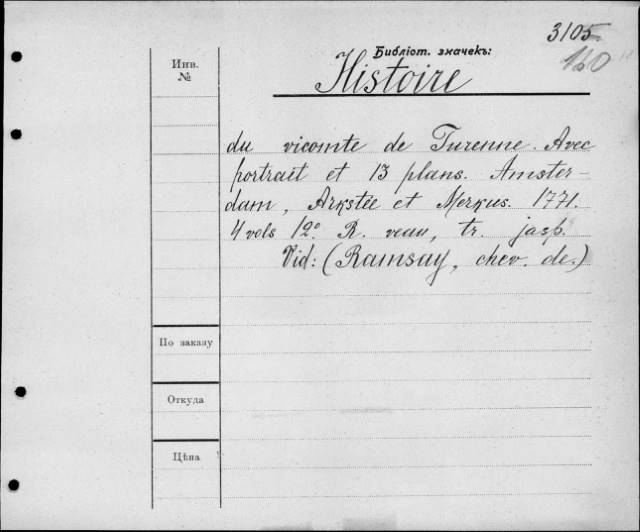 3105
160
Библіот. значекъ:
Инв.
№
Histoire
du vicomte de Turenne. Avec
portrait et 13 plans. Amster-
dam, Arkstée et Merkus. 1771.
4 vols 12º R. veau, tr. jasp.
Vid: (Ramsay, chev. de.)
По заказу
Откуда
Цѣна